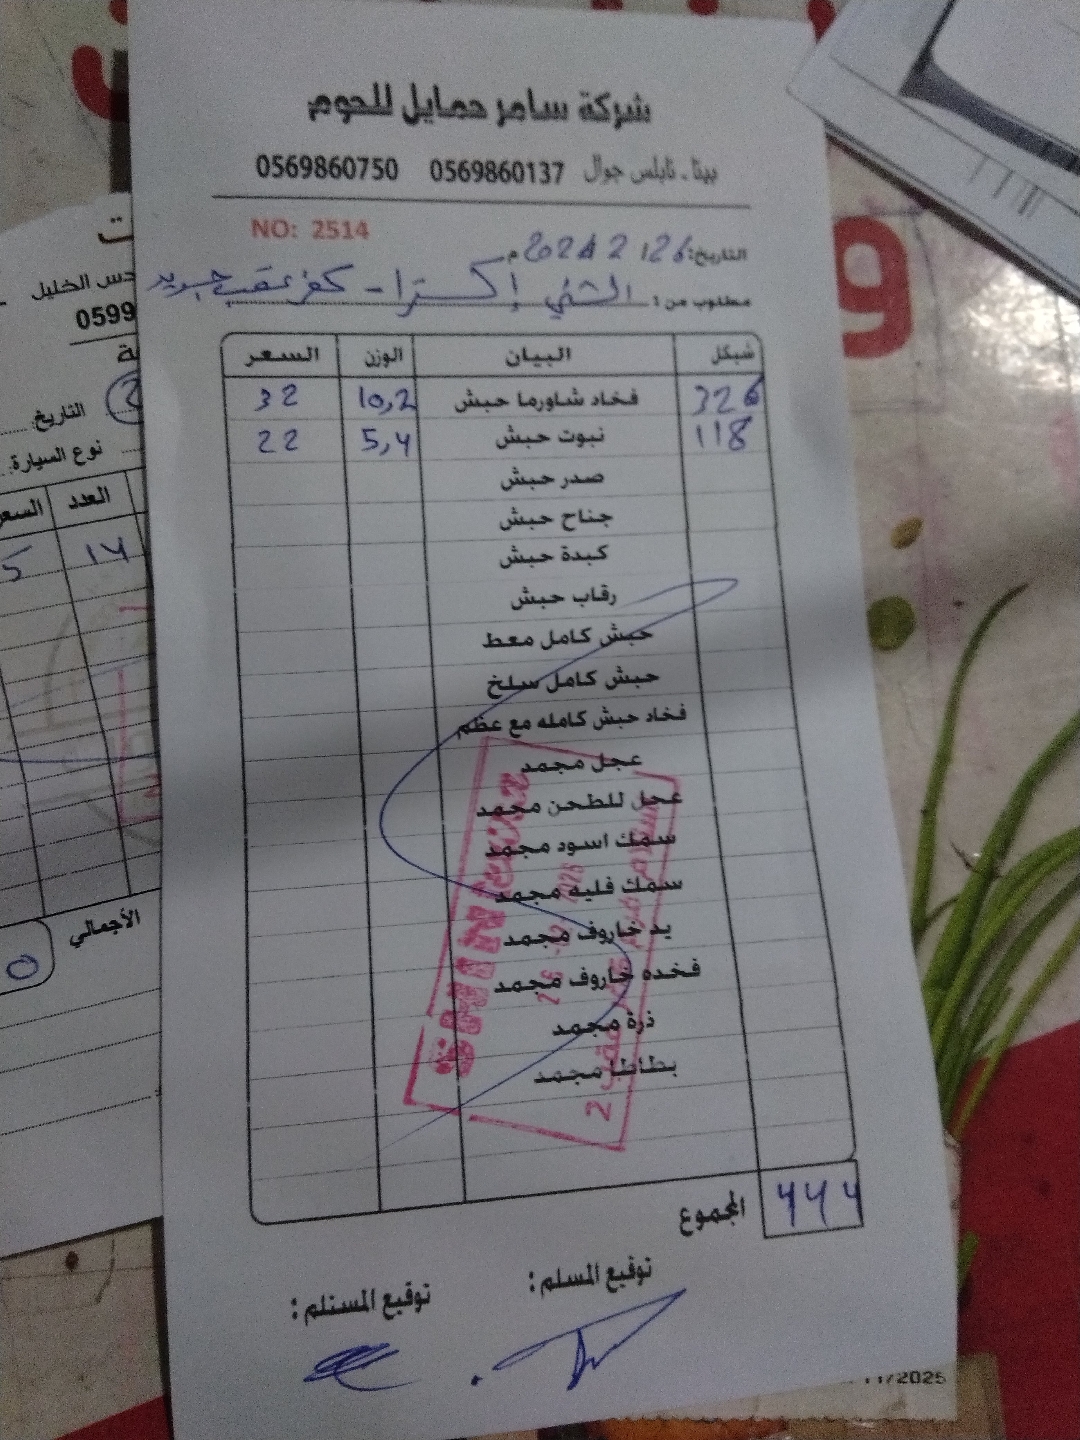 شركة سامر حمايل للحوم
بيتا - نابلس جوال 0569860137 0569860750
NO: 2514
التاريخ: 26/2/202 م
مطلوب من: الشني إكسترا - كفر عقب جديد
شيكل البيان الوزن السعر
326 فخاد شاورما حبش 10,2 32
118 نبوت حبش 5,4 22
صدر حبش
جناح حبش
كبدة حبش
رقاب حبش
حبش كامل معط
حبش كامل سلخ
فخاد حبش كامله مع عظم
عجل مجمد
عجل للطحن مجمد
سمك اسود مجمد
سمك فليه مجمد
يد خاروف مجمد
فخده خاروف مجمد
ذرة مجمد
بطاطا مجمد
المجموع 444
توقيع المسلم :
توقيع المستلم :
حس الخليل
0599
التاريخ
نوع السيارة
العدد السعر
14 5
الأجمالي
0
11/2025